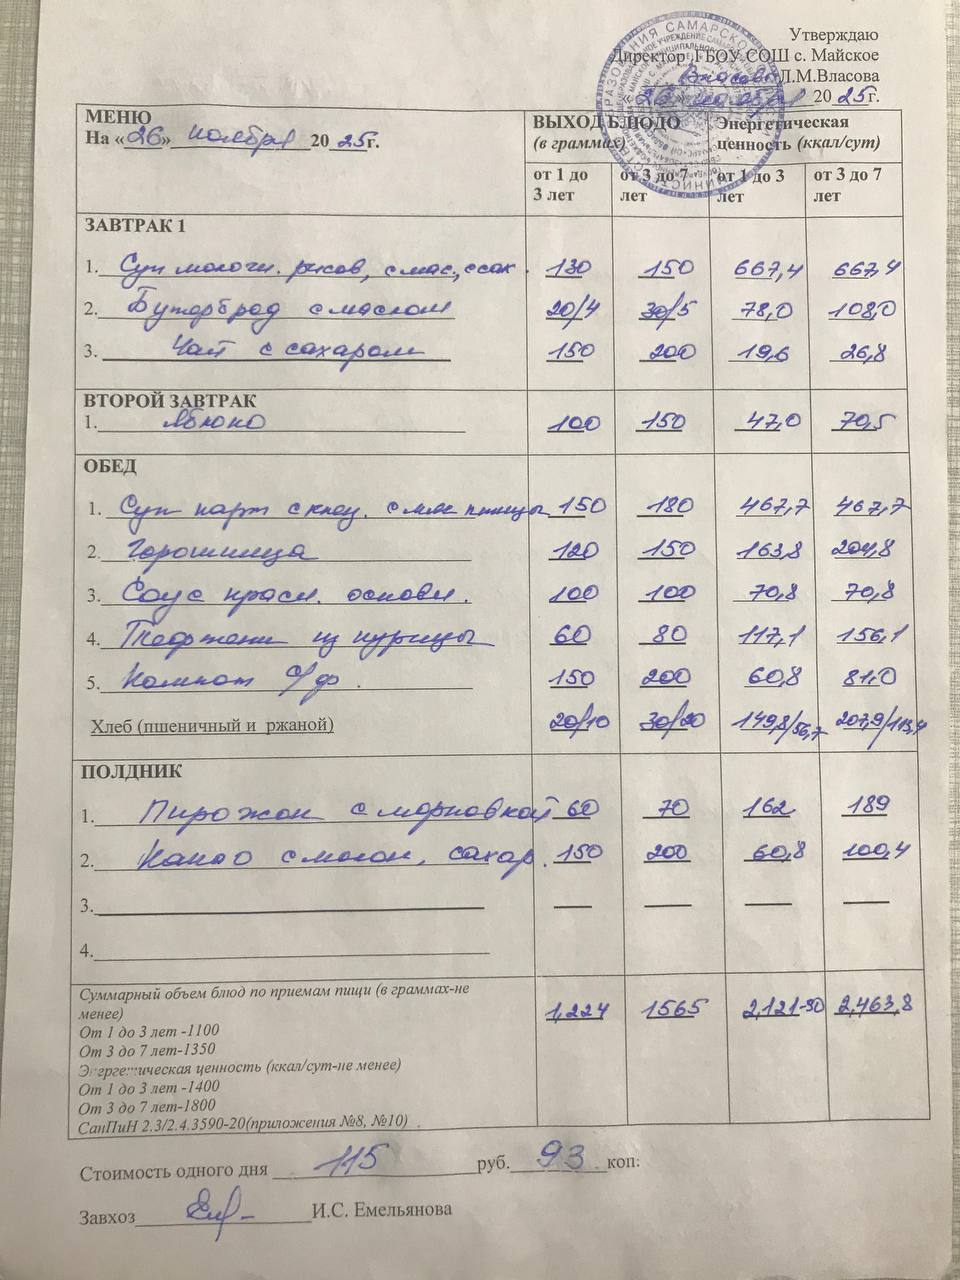 Утверждаю
Директор ГБОУ СОШ с. Майское
Власова Л.М.Власова
«26» ноября 2025г.
МЕНЮ
На «26» ноября 2025г.
ВЫХОД БЛЮДО (в граммах)
Энергетическая ценность (ккал/сут)
от 1 до 3 лет от 3 до 7 лет от 1 до 3 лет от 3 до 7 лет
ЗАВТРАК 1
1. Суп молочн. рисов, с мас, с сах. 130 150 667,4 667,4
2. Бутерброд с маслом 20/4 30/5 78,0 108,0
3. Чай с сахаром 150 200 19,6 26,8
ВТОРОЙ ЗАВТРАК
1. Яблоко 100 150 47,0 70,5
ОБЕД
1. Суп карт с клец. с мяс птицы 150 180 467,7 467,7
2. Горошница 120 150 163,8 204,8
3. Соус красн. основн. 100 100 70,8 70,8
4. Тефтели из курицы 60 80 117,1 156,1
5. Компот с/ф. 150 200 60,8 81,0
Хлеб (пшеничный и ржаной) 20/10 30/20 149,8/56,7 207,9/113,4
ПОЛДНИК
1. Пирожок с морковкой 60 70 162 189
2. Какао с молок, сахар. 150 200 60,8 100,4
3.
4.
Суммарный объем блюд по приемам пищи (в граммах-не менее) 1,224 1565 2,121-30 2,463,8
От 1 до 3 лет -1100
От 3 до 7 лет-1350
Энергетическая ценность (ккал/сут-не менее)
От 1 до 3 лет -1400
От 3 до 7 лет-1800
СанПиН 2.3/2.4.3590-20(приложения №8, №10)
Стоимость одного дня 115 руб. 93 коп:
Завхоз И.С. Емельянова